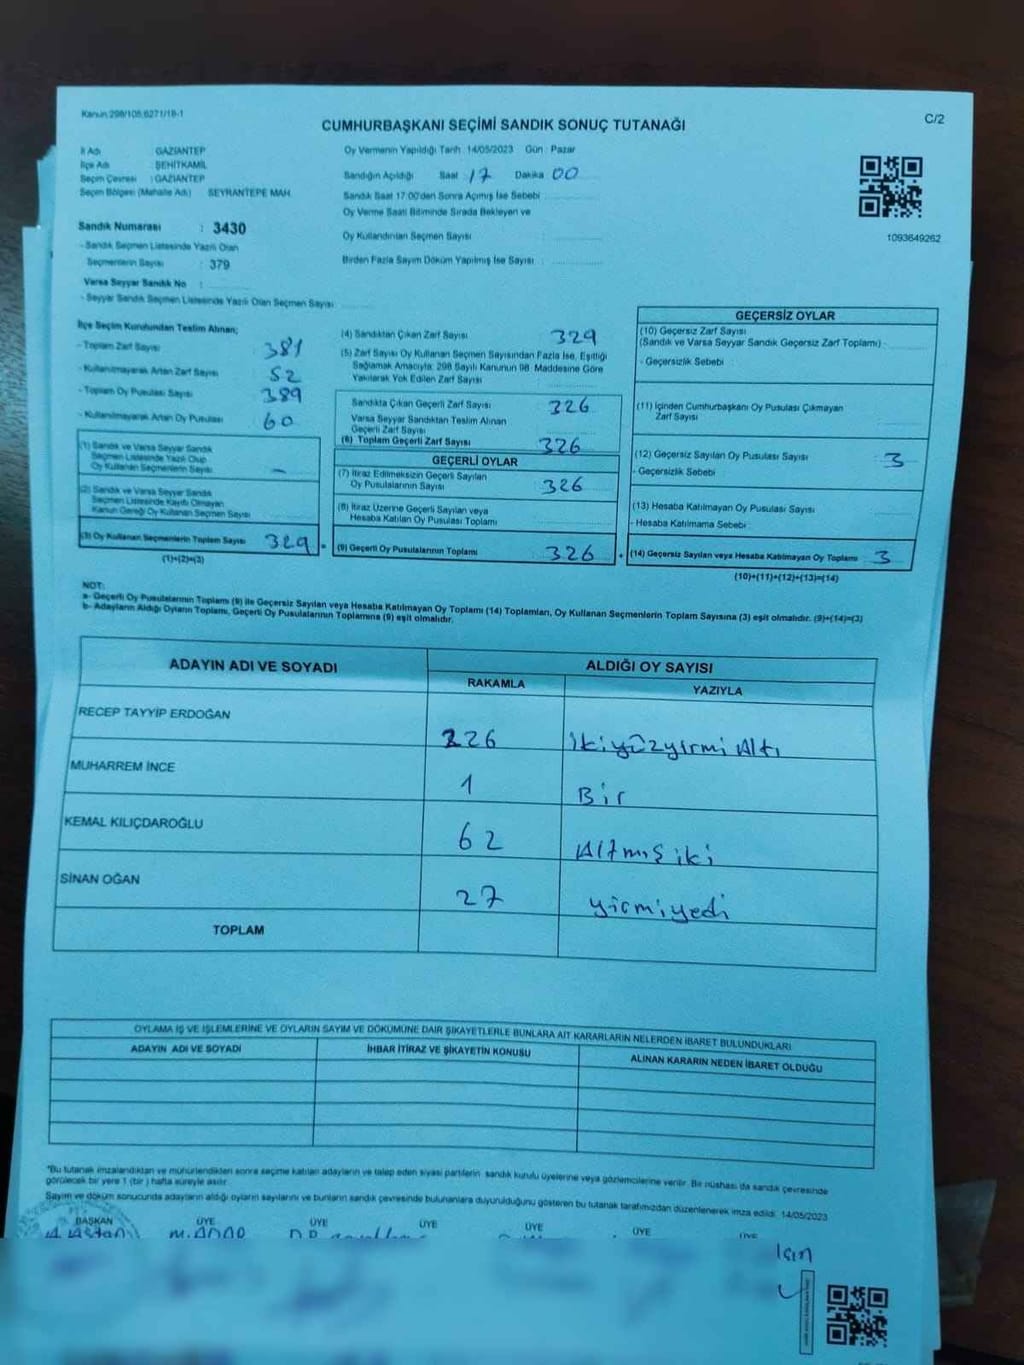 Kanun:298/105;6271/18-1
C/2
CUMHURBAŞKANI SEÇİMİ SANDIK SONUÇ TUTANAĞI
İl Adı GAZİANTEP
İlçe Adı ŞEHİTKAMİL
Seçim Çevresi : GAZİANTEP
Seçim Bölgesi (Mahalle Adı) SEYRANTEPE MAH.
Oy Vermenin Yapıldığı Tarih 14/05/2023 Gün : Pazar
Sandığın Açıldığı Saat : 17 Dakika 00
Sandık Saat 17:00'den Sonra Açılmış İse Sebebi
Oy Verme Saati Bitiminde Sırada Bekleyen ve
Oy Kullandırılan Seçmen Sayısı :
Birden Fazla Sayım Döküm Yapılmış İse Sayısı :
1093649262
Sandık Numarası : 3430
- Sandık Seçmen Listesinde Yazılı Olan
Seçmenlerin Sayısı : 379
Varsa Seyyar Sandık No :
- Seyyar Sandık Seçmen Listesinde Yazılı Olan Seçmen Sayısı
İlçe Seçim Kurulundan Teslim Alınan;
- Toplam Zarf Sayısı 381
- Kullanılmayarak Artan Zarf Sayısı 52
- Toplam Oy Pusulası Sayısı 389
- Kullanılmayarak Artan Oy Pusulası 60
(1) Sandık ve Varsa Seyyar Sandık
Seçmen Listesinde Yazılı Olup
Oy Kullanan Seçmenlerin Sayısı –
(2) Sandık ve Varsa Seyyar Sandık
Seçmen Listesinde Kayıtlı Olmayan
Kanun Gereği Oy Kullanan Seçmen Sayısı
(3) Oy Kullanan Seçmenlerin Toplam Sayısı 329 =
(1)+(2)=(3)
(4) Sandıktan Çıkan Zarf Sayısı 329
(5) Zarf Sayısı Oy Kullanan Seçmen Sayısından Fazla İse, Eşitliği
Sağlamak Amacıyla; 298 Sayılı Kanunun 98. Maddesine Göre
Yakılarak Yok Edilen Zarf Sayısı
Sandıkta Çıkan Geçerli Zarf Sayısı 326
Varsa Seyyar Sandıktan Teslim Alınan
Geçerli Zarf Sayısı
(6) Toplam Geçerli Zarf Sayısı 326
GEÇERLİ OYLAR
(7) İtiraz Edilmeksizin Geçerli Sayılan
Oy Pusulalarının Sayısı : 326
(8) İtiraz Üzerine Geçerli Sayılan veya
Hesaba Katılan Oy Pusulası Toplamı
(9) Geçerli Oy Pusulalarının Toplamı : 326 +
GEÇERSİZ OYLAR
(10) Geçersiz Zarf Sayısı
(Sandık ve Varsa Seyyar Sandık Geçersiz Zarf Toplamı) :
- Geçersizlik Sebebi :
(11) İçinden Cumhurbaşkanı Oy Pusulası Çıkmayan
Zarf Sayısı
(12) Geçersiz Sayılan Oy Pusulası Sayısı : 3
- Geçersizlik Sebebi
(13) Hesaba Katılmayan Oy Pusulası Sayısı
- Hesaba Katılmama Sebebi :
(14) Geçersiz Sayılan veya Hesaba Katılmayan Oy Toplamı 3
(10)+(11)+(12)+(13)=(14)
NOT:
a- Geçerli Oy Pusulalarının Toplamı (9) ile Geçersiz Sayılan veya Hesaba Katılmayan Oy Toplamı (14) Toplamları, Oy Kullanan Seçmenlerin Toplam Sayısına (3) eşit olmalıdır. (9)+(14)=(3)
b- Adayların Aldığı Oyların Toplamı, Geçerli Oy Pusulalarının Toplamına (9) eşit olmalıdır.
ADAYIN ADI VE SOYADI ALDIĞI OY SAYISI
RAKAMLA YAZIYLA
RECEP TAYYİP ERDOĞAN 226 ikiyüzyirmi Altı
MUHARREM İNCE 1 Bir
KEMAL KILIÇDAROĞLU 62 Altmış iki
SİNAN OĞAN 27 yirmiyedi
TOPLAM
OYLAMA İŞ VE İŞLEMLERİNE VE OYLARIN SAYIM VE DÖKÜMÜNE DAİR ŞİKAYETLERLE BUNLARA AİT KARARLARIN NELERDEN İBARET BULUNDUKLARI
ADAYIN ADI VE SOYADI İHBAR İTİRAZ VE ŞİKAYETİN KONUSU ALINAN KARARIN NEDEN İBARET OLDUĞU
*Bu tutanak imzalandıktan ve mühürlendikten sonra seçime katılan adayların ve talep eden siyasi partilerin sandık kurulu üyelerine veya gözlemcilerine verilir. Bir nüshası da sandık çevresinde
görülecek bir yere 1 (bir) hafta süreyle asılır.
Sayım ve döküm sonucunda adayların aldığı oyların sayılarını ve bunların sandık çevresinde bulunanlara duyurulduğunu gösteren bu tutanak tarafımızdan düzenlenerek imza edildi. 14/05/2023
BAŞKAN ÜYE ÜYE ÜYE ÜYE ÜYE ÜYE
Için